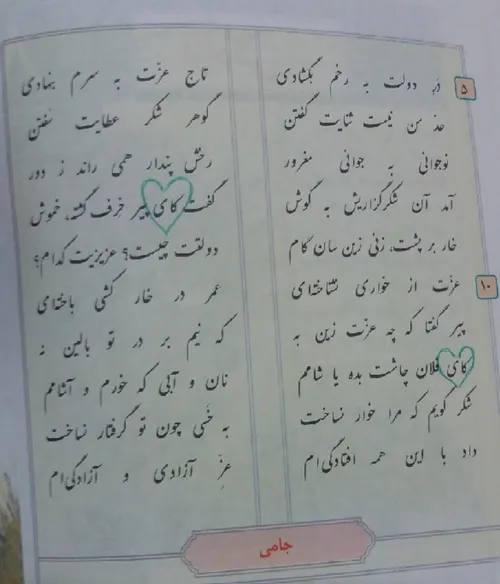 ۵
درِ دولت به رخم بگشادی
تاج عزّت به سرم بنهادی
حدّ من نیست ثنایت گفتن
گوهر شکر عطایت سُفتن
نوجوانی به جوانی مغرور
رخش پندار همی راند ز دور
آمد آن شکرگزاریش به گوش
گفت کای پیر خرف گشته، خموش
خار بر پشت، زنی زین سان گام
دولتت چیست؟ عزیزیت کدام؟
۱۰
عزّت از خواری نشناخته‌ای
عمر در خار کشی باخته‌ای
پیر گفتا که چه عزّت زین به
که نیم بر در تو بالین نه
کای فلان چاشت بده یا شامم
نان و آبی که خورم و آشامم
شکر گویم که مرا خوار نساخت
به خَسی چون تو گرفتار نساخت
داد با این همه افتادگی‌ام
عزّ آزادی و آزادگی‌ام
جامی